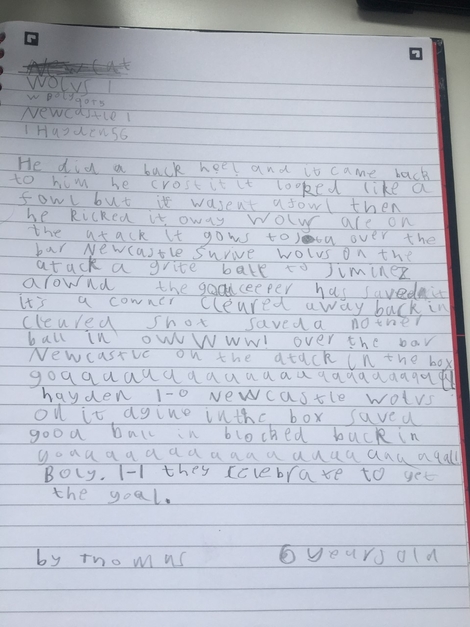 Wolvs 1
w Boly 90rs
Newcastle 1
1 Hayden 56
He did a back heel and it came back
to him he crost it it looked like a
fowl but it wasent a fowl then
he kicked it away Wolvs are on
the atack it gows to over the
bar Newcastle Survive wolvs on the
atack a grite ball to Jiminez
arownd the goalceeper has saved it
it's a cowner cleared away back in
cleured shot saved a nother
ball in owwwww! over the bar
Newcastle on the atack in the box
goaaaaaaaaaaaaaaaaaaaaall
hayden 1-0 Newcastle wolvs
on it agine in the box saved
good ball in blocked back in
goaaaaaaaaaaaaaaaaaaaaall
Boly. 1-1 they celebrate to get
the goal.
by Thomas 6 years old